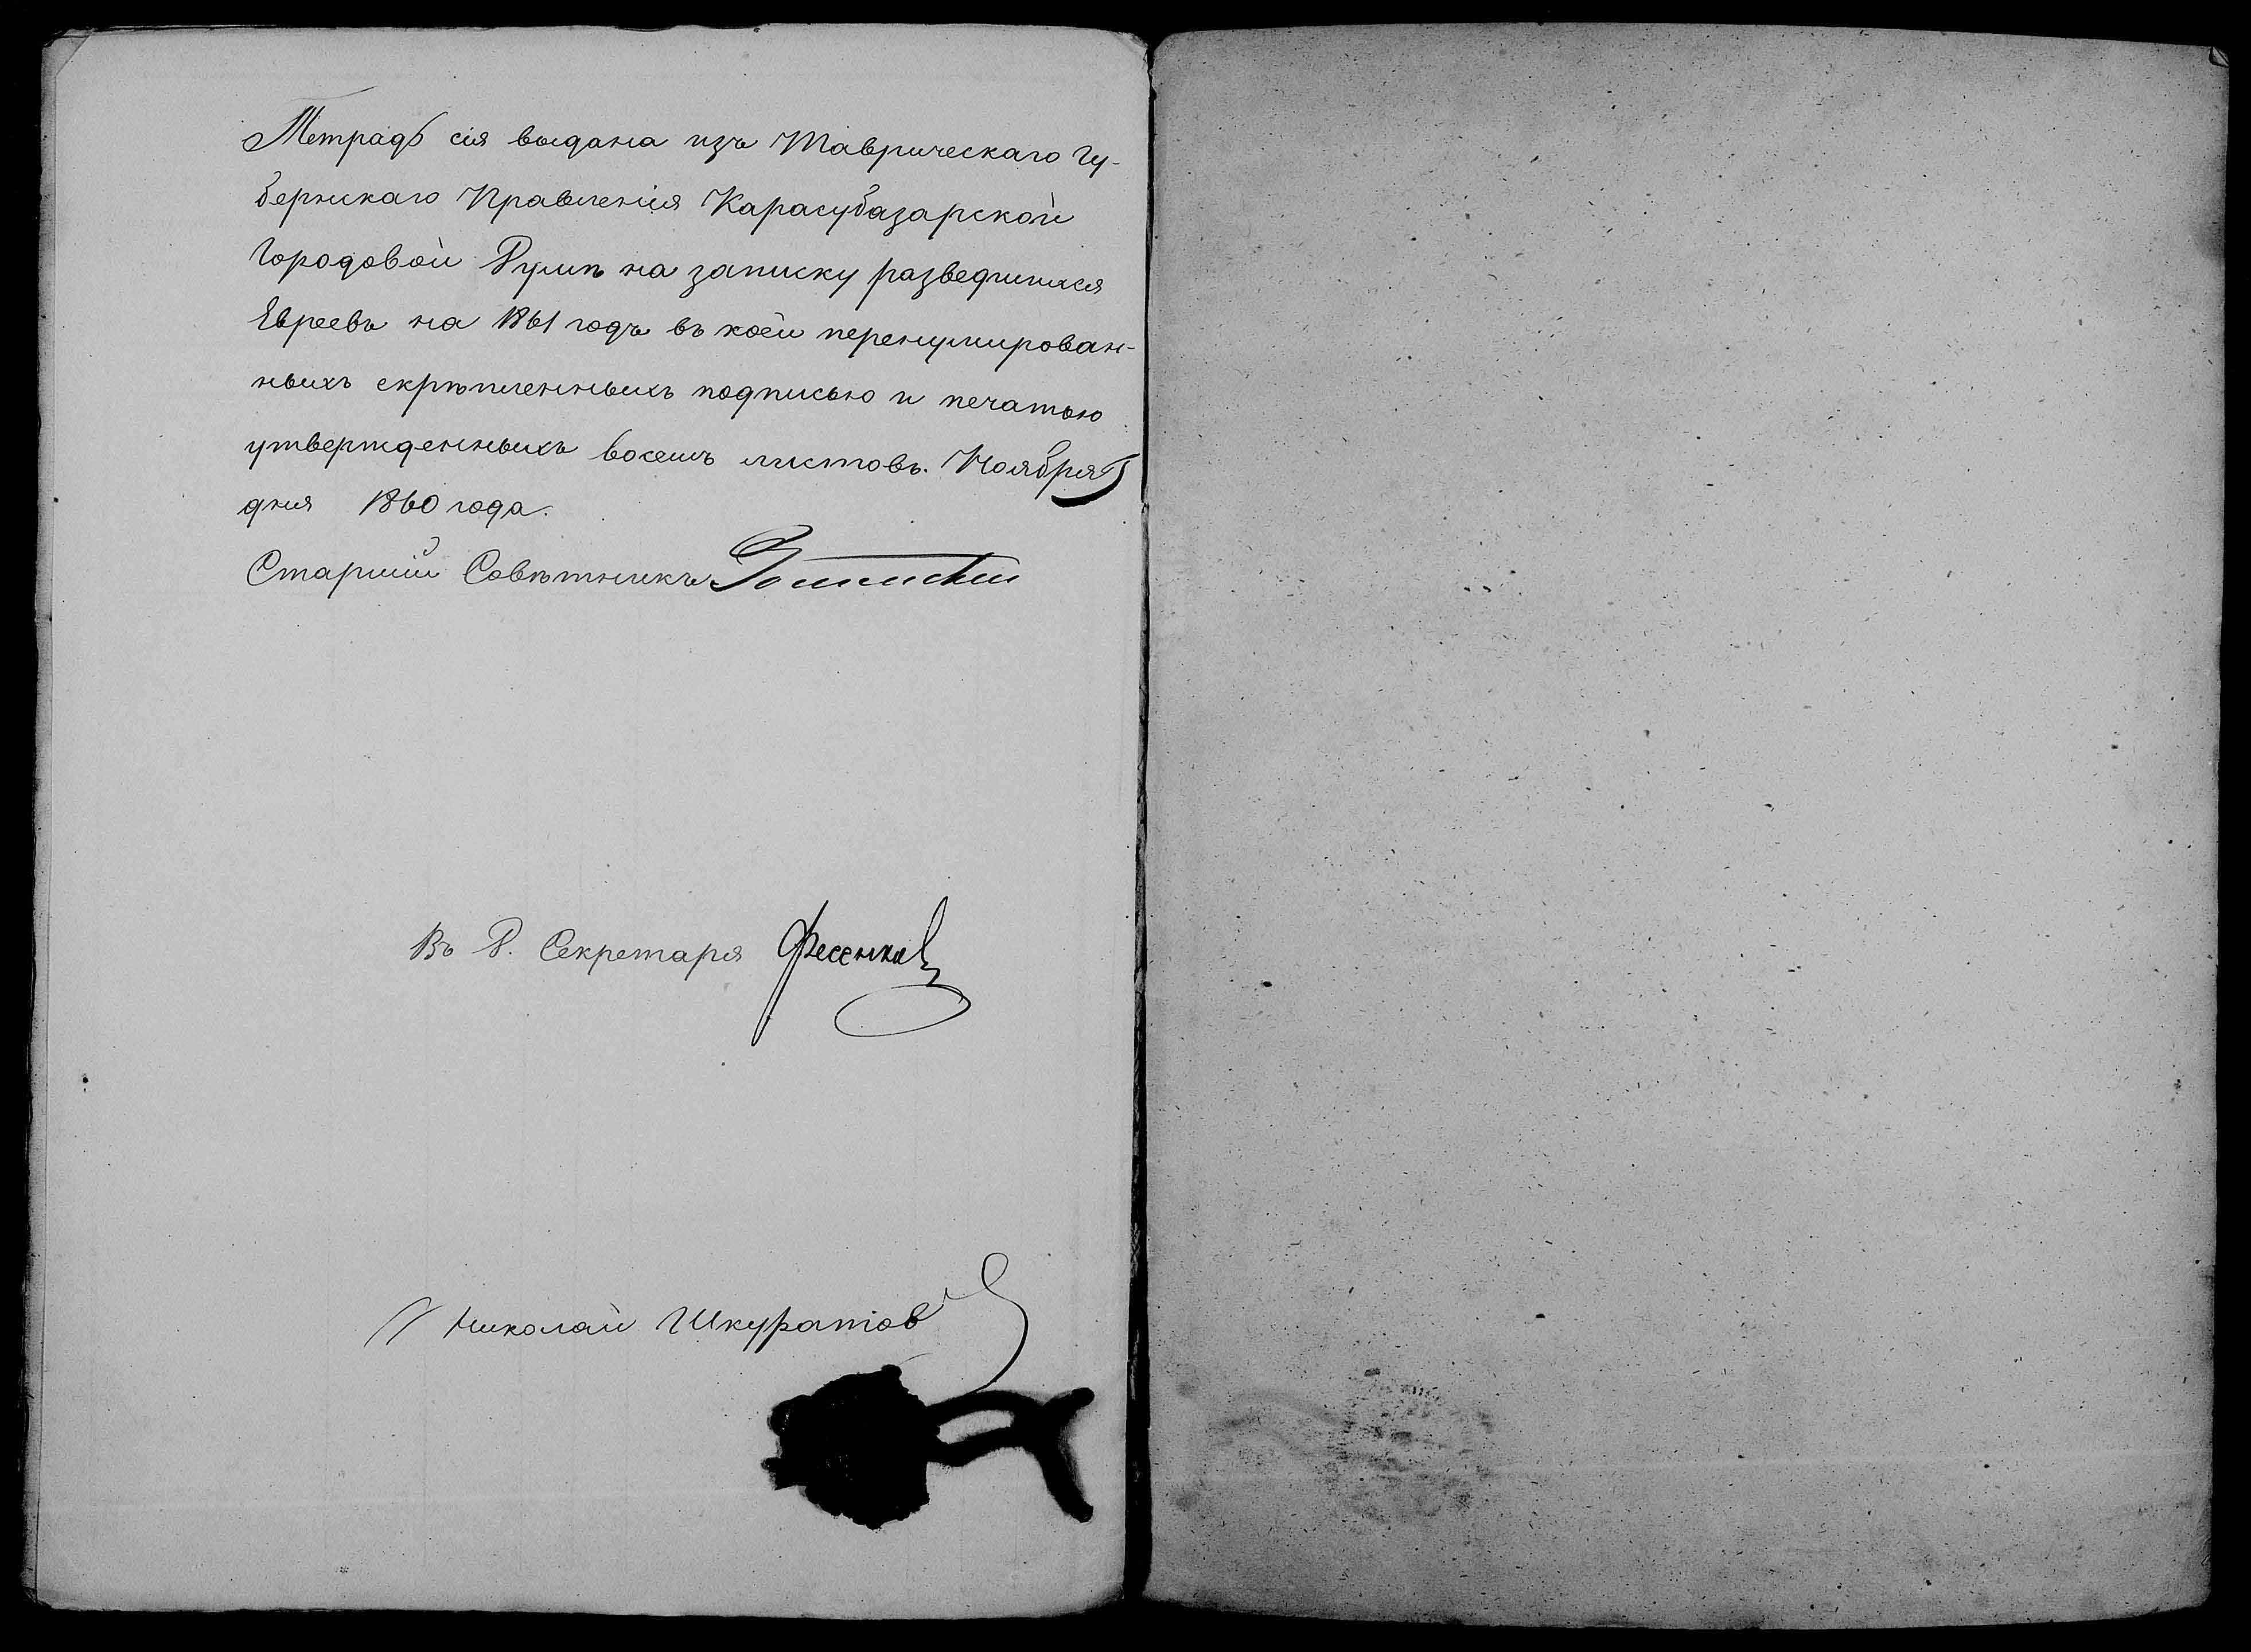 Тетрадь сія выдана изъ Таврическаго Гу-
бернскаго Правленія Карасубазарской
Городовой Думѣ на записку разведшихся
Евреевъ на 1861 годъ въ коей перенумирован-
ныхъ скрѣпленныхъ подписью и печатью
утвержденныхъ восемь листовъ. Ноября 5
дня 1860 года.
Старшій Совѣтникъ
Въ Д. Секретаря Фесенко
Николай Шкуратов